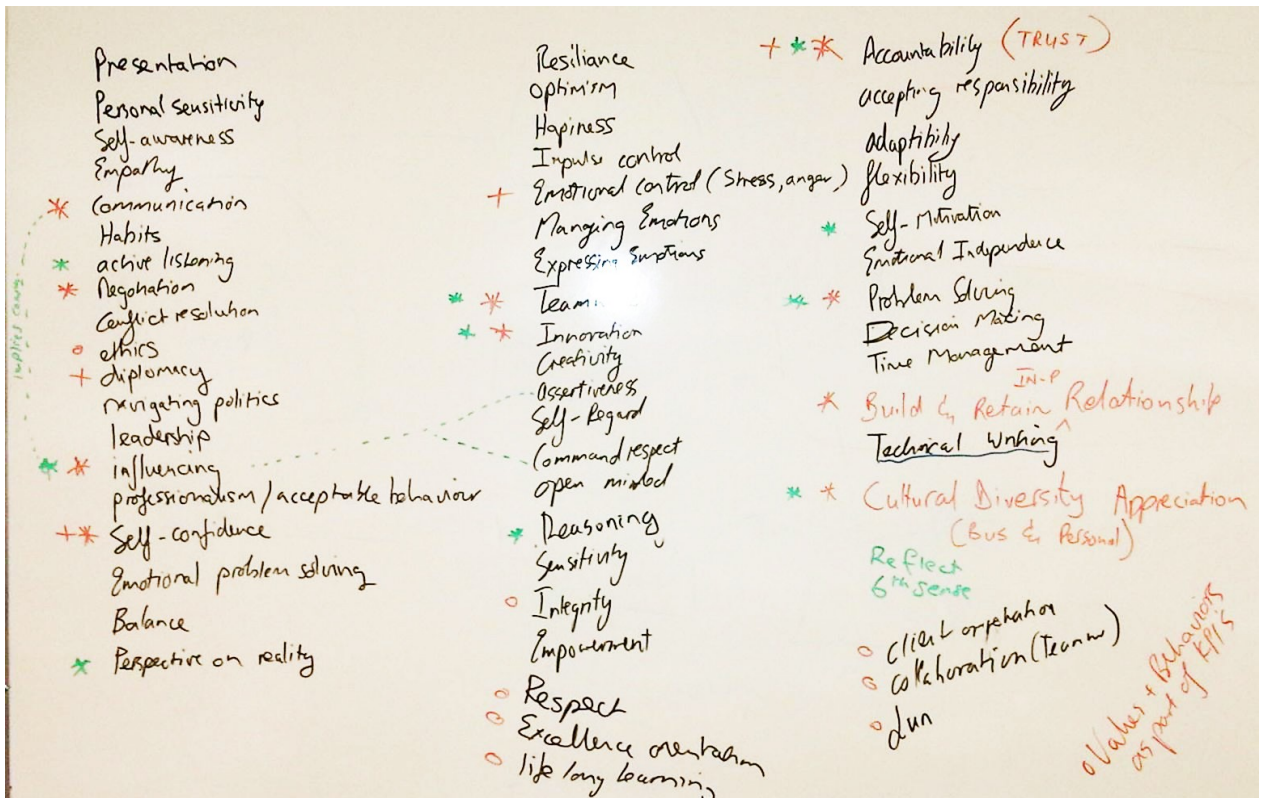 Presentation
Personal sensitivity
Self-awareness
Empathy
Communication
Habits
active listening
Negotiation
Conflict resolution
ethics
diplomacy
navigating politics
leadership
influencing
professionalism / acceptable behaviour
Self-confidence
Emotional problem solving
Balance
Perspective on reality
implies
Resiliance
optimism
Hapiness
Impulse control
Emotional control (Stress, anger)
Manging Emotions
Expressing Emotions
Team
Innovation
Creativity
assertiveness
Self-Regard
Command respect
open minded
Reasoning
Sensitivity
Integrity
Empowerment
Respect
Excellence orientation
life long learning
Accountability (TRUST)
accepting responsibility
adaptibility
flexibility
Self-Motivation
Emotional Independence
Problem Solving
Decision Making
Time Management
IN-P
Build & Retain Relationship
Technical Writing
Cultural Diversity Appreciation
(Bus & Personal)
Reflect
6th sense
Client
collaboration
o Values + Behaviors
as part of KPI's